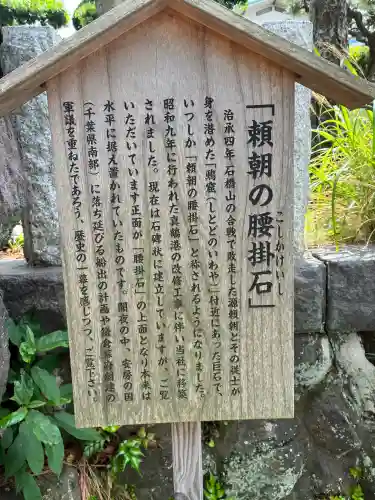 「頼朝の腰掛石」
こしかけいし
治承四年、石橋山の合戦で敗走した源頼朝とその従士が
身を潜めた「鵐窟(しとどのいわや)」付近にあった巨石で、
いつしか「頼朝の腰掛石」と称されるようになりました。
昭和九年に行われた真鶴港の改修工事に伴い当社に移築
されました。現在は石碑状に建立していますが、ご覧
いただいています正面が、「腰掛石」の上面となり本来は
水平に据え置かれていたものです。闇夜の中、安房の国
(千葉県南部)に落ち延びる船出の計画や鎌倉幕府創建の
軍議を重ねたであろう、歴史の一幕を感じつつ、ご覧下さい。